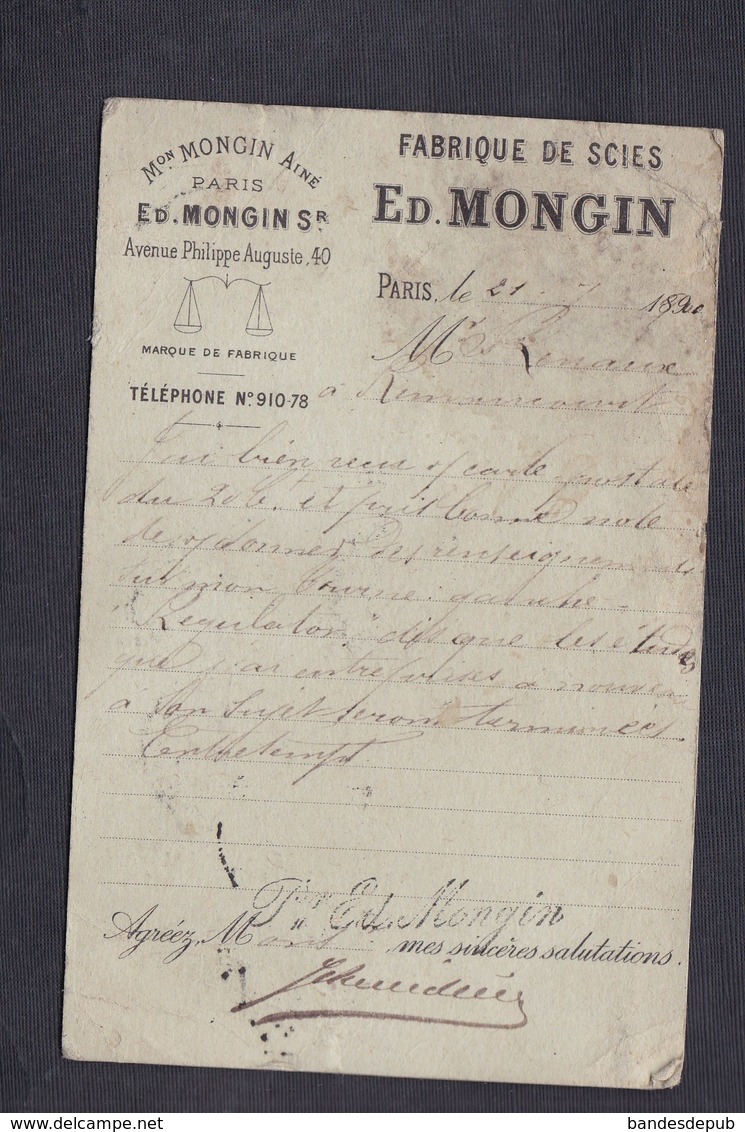 Mon MONGIN AINÉ
PARIS
ED. MONGIN SR
Avenue Philippe Auguste, 40
MARQUE DE FABRIQUE
TÉLÉPHONE No 910-78
FABRIQUE DE SCIES
ED. MONGIN
PARIS, le 21 - 7 1890
Mr Renaux
à
J'ai bien reçu v/ carte postale
du 20 Ct. et pris bonne note
de v/ donner des renseignements
sur mon
"Regulator" dès que les études
que j'ai entreprises à nouveau
à son sujet seront terminées
Entretemps
Pon Ed. Mongin
Agréez, M mes sincères salutations.
bandesdepub